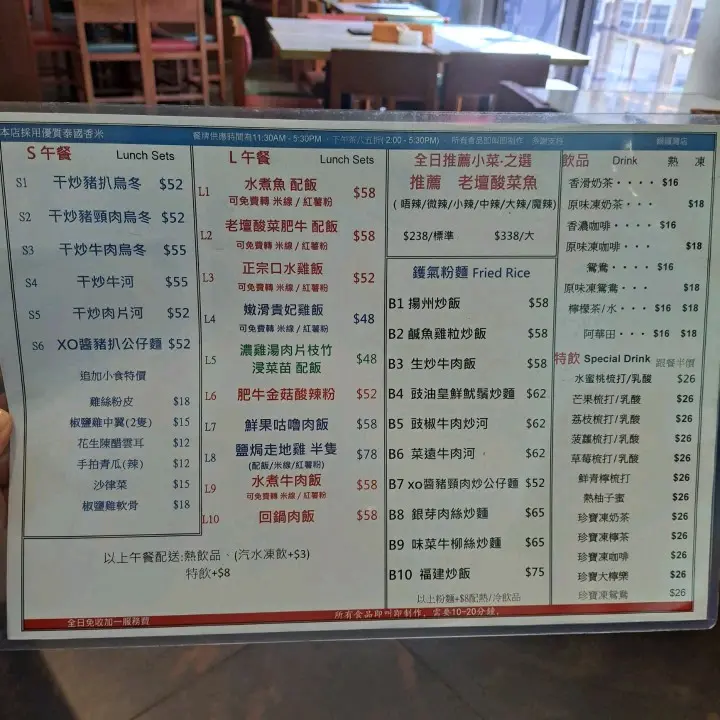 本店採用優質泰國香米
餐牌供應時間為11:30AM - 5:30PM · 下午茶八五折(2:00 - 5:30PM) · 所有食品即叫即制作
S 午餐 Lunch Sets
S1 干炒豬扒烏冬 $52
S2 干炒豬頸肉烏冬 $52
S3 干炒牛肉烏冬 $55
S4 干炒牛河 $55
S5 干炒肉片河 $52
S6 XO醬豬扒公仔麵 $52
追加小食特價
雞絲粉皮 $18
椒鹽雞中翼(2隻) $15
花生陳醋雲耳 $12
手拍青瓜(辣) $12
沙律菜 $15
椒鹽雞軟骨 $18
L 午餐 Lunch Sets
L1 水煮魚 配飯 $58
可免費轉 米線 / 紅薯粉
L2 老壇酸菜肥牛 配飯 $58
可免費轉 米線 / 紅薯粉
L3 正宗口水雞飯 $52
可免費轉 米線 / 紅薯粉
L4 嫩滑貴妃雞飯 $48
可免費轉 米線 / 紅薯粉
L5 濃雞湯肉片枝竹 $48
浸菜苗 配飯
L6 肥牛金菇酸辣粉 $52
L7 鮮果咕嚕肉飯 $58
L8 鹽焗走地雞 半隻 $78
(配飯/米線/紅薯粉)
L9 水煮牛肉飯 $58
可免費轉 米線 / 紅薯粉
L10 回鍋肉飯 $58
以上午餐配送:熱飲品、(汽水凍飲+$3)
特飲+$8
全日推薦小菜-之選
推薦 老壇酸菜魚
( 唔辣/微辣/小辣/中辣/大辣/魔辣)
$238/標準 $338/大
鑊氣粉麵 Fried Rice
B1 揚州炒飯 $58
B2 鹹魚雞粒炒飯 $58
B3 生炒牛肉飯 $58
B4 豉油皇鮮魷鬚炒麵 $62
B5 豉椒牛肉炒河 $62
B6 菜遠牛肉河 $62
B7 xo醬豬頸肉炒公仔麵 $52
B8 銀芽肉絲炒麵 $65
B9 味菜牛柳絲炒麵 $65
B10 福建炒飯 $75
以上粉麵+$8配熱/冷飲品
飲品 Drink 熱 凍
香滑奶茶···· $16
原味凍奶茶··· $18
香濃咖啡···· $16
原味凍咖啡··· $18
鴛鴦···· $16
原味凍鴛鴦··· $18
檸檬茶/水··· $16 $18
阿華田··· $16 $18
特飲 Special Drink 跟餐半價
水蜜桃梳打/乳酸 $26
芒果梳打/乳酸 $26
荔枝梳打/乳酸 $26
菠蘿梳打/乳酸 $26
草莓梳打/乳酸 $26
鮮青檸梳打 $26
熱柚子蜜 $26
珍寶凍奶茶 $26
珍寶凍檸茶 $26
珍寶凍咖啡 $26
珍寶大檸樂 $26
珍寶凍鴛鴦 $26
全日免收加一服務費
所有食品即叫即制作，需要10-20分鐘，